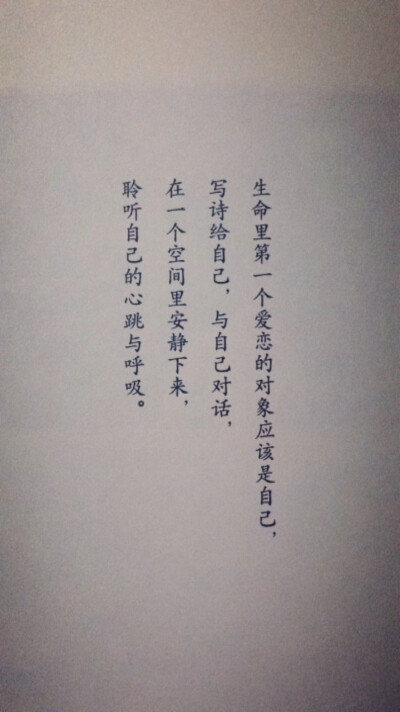 生命里第一个爱恋的对象应该是自己，
写诗给自己，与自己对话，
在一个空间里安静下来，
聆听自己的心跳与呼吸。